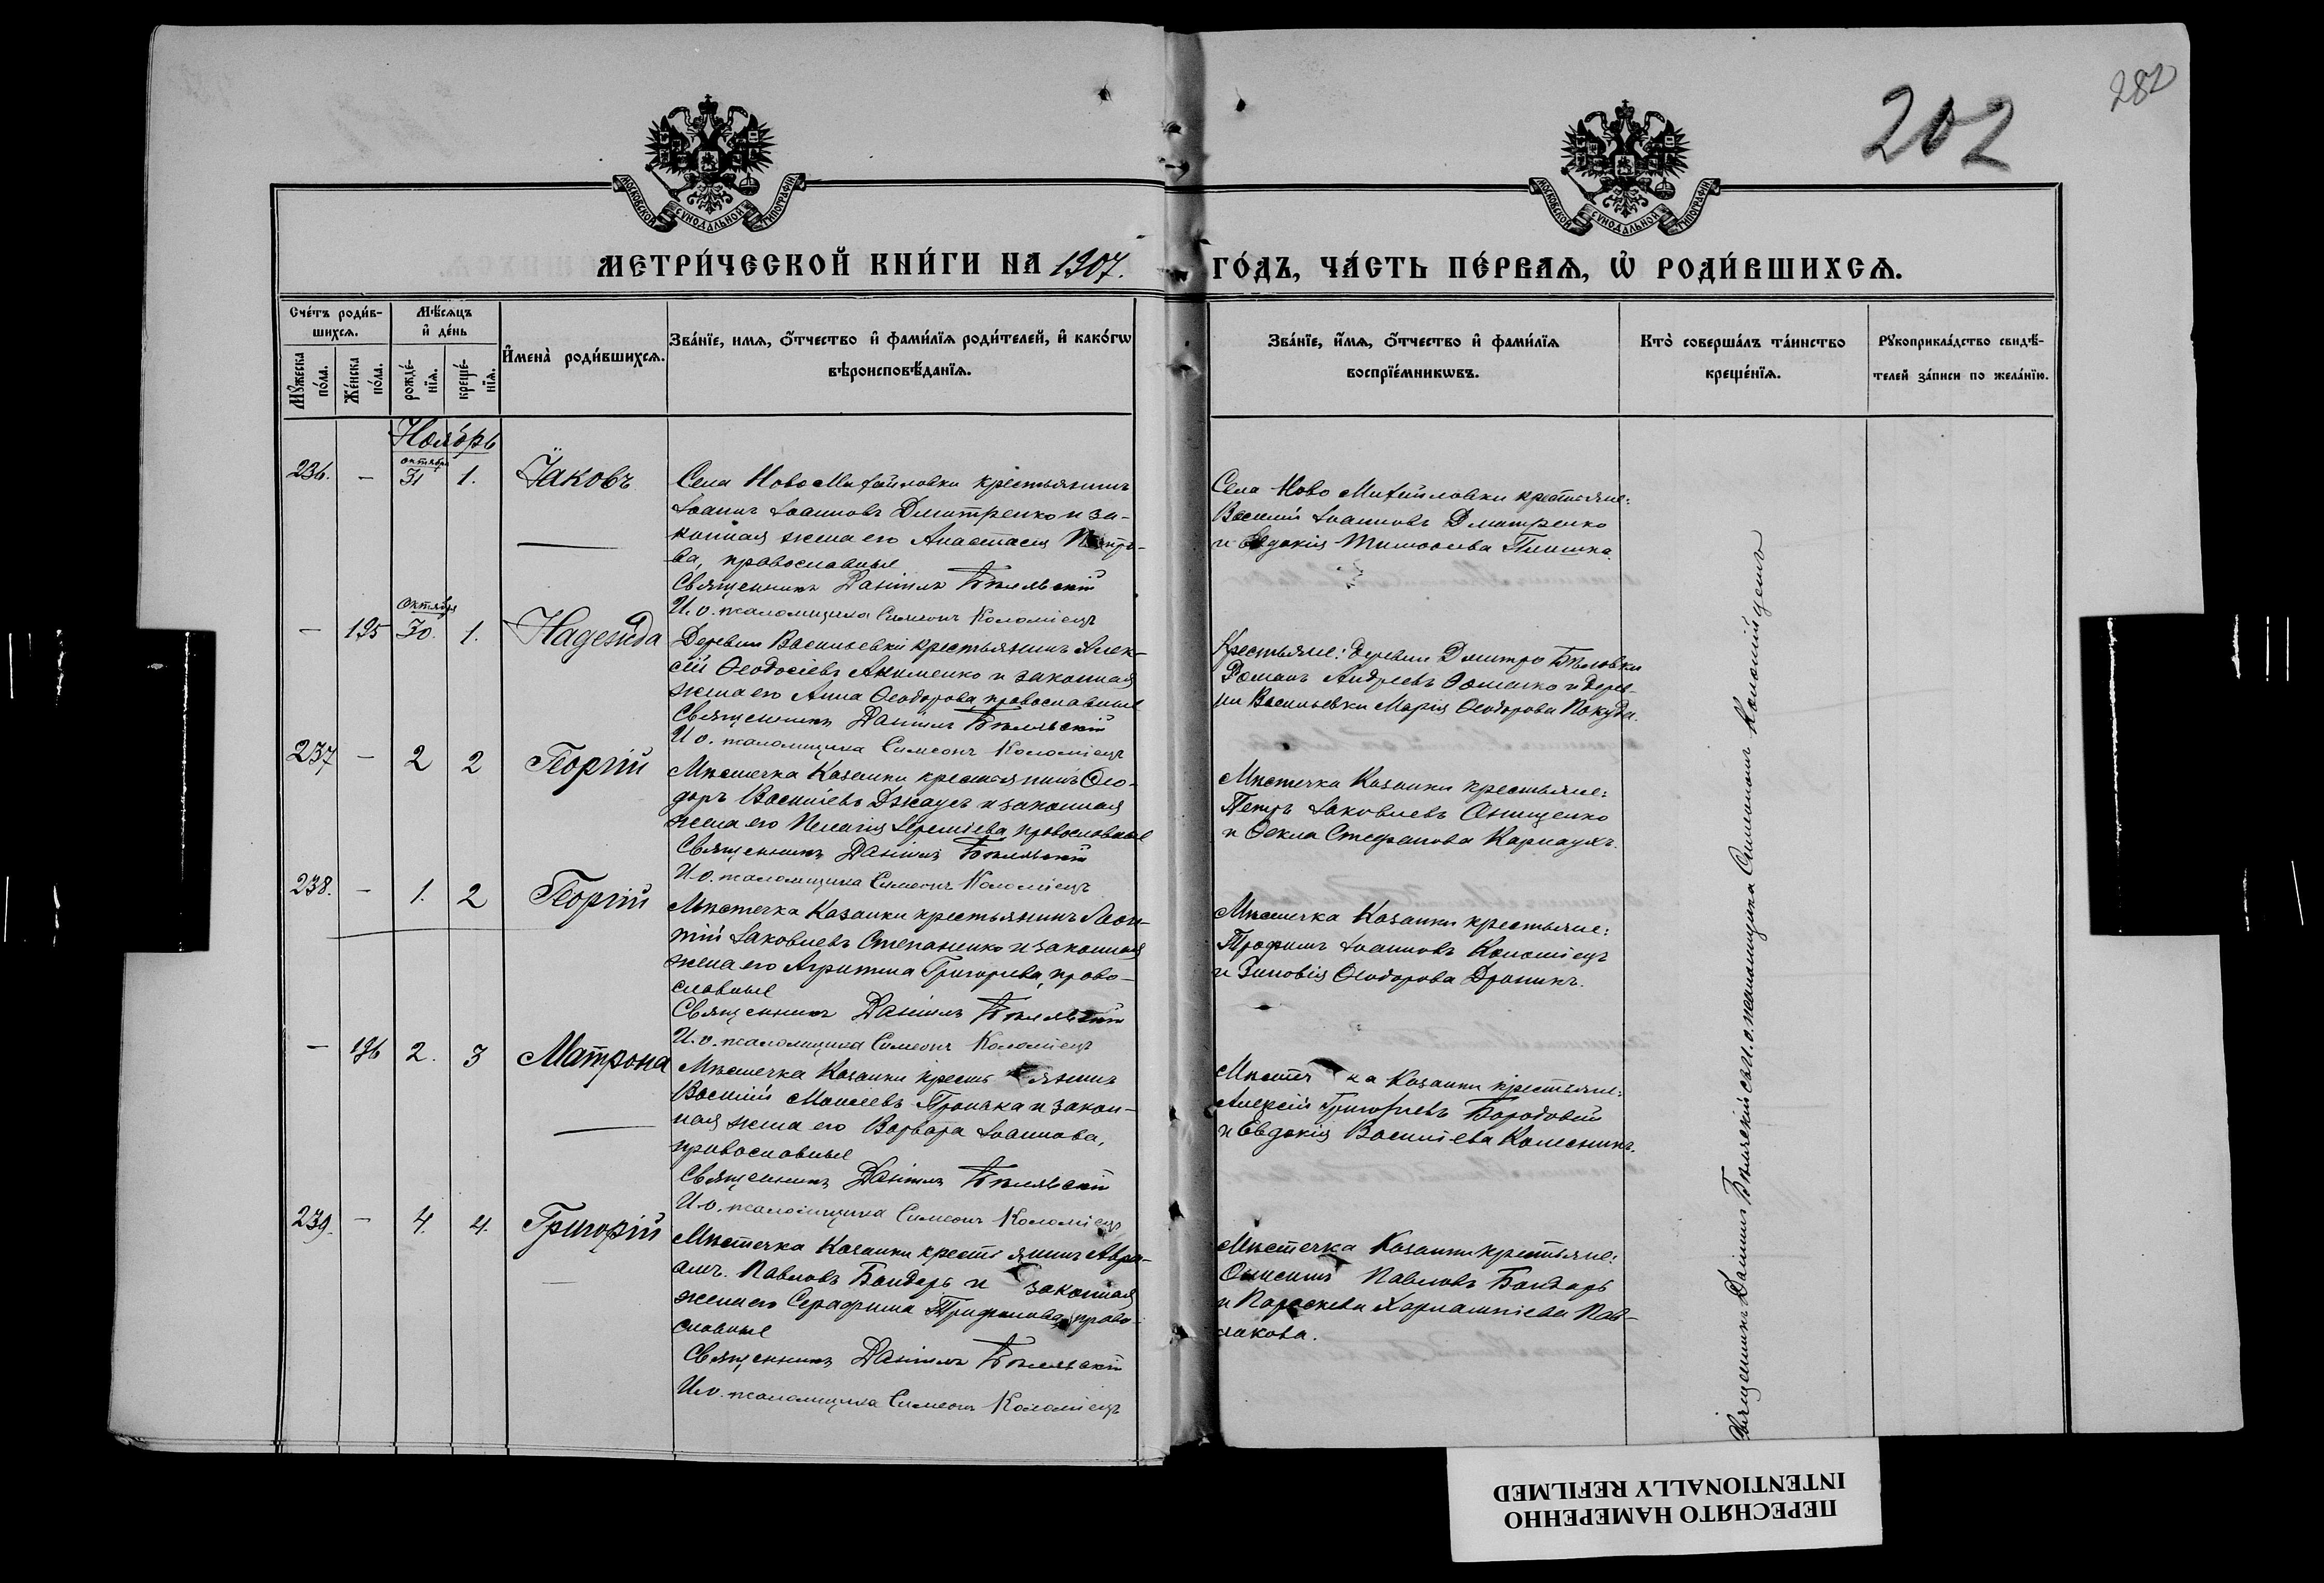 202
282
МОСКОВСКОЙ СѴНОДАЛЬНОЙ ТИПОГРАФІИ
МОСКОВСКОЙ СѴНОДАЛЬНОЙ ТИПОГРАФІИ
МЕТРИ́ЧЕСКОЙ КНИ́ГИ НА 1907. ГО́ДЪ, ЧА́СТЬ ПЕ́РВАѦ, Ѡ҆ РОДИ́ВШИХСѦ.
Сче́тъ роди́в-
шихсѧ.
Мѣ́сѧцъ
и҆ де́нь
Мꙋ́жеска
по́ла.
Же́нска
по́ла.
рожде́-
нїѧ.
креще́-
нїѧ.
И҆мена̀ роди́вшихсѧ.
Зва́нїе, имѧ, ѻ҆́тчество и҆ фами́лїѧ роди́телей, и҆ како́гѡ
вѣроисповѣ́данїѧ.
Зва́нїе, и҆́мѧ, ѻ҆́тчество и҆ фами́лїѧ
воспрїе́мникѡвъ.
Кто̀ соверша́лъ та́инство
креще́нїѧ.
Рꙋкоприкла́дство свидѣ́-
телей за́писи по жела́нїю.
Ноябрь
236. - октября 31 1. Іаковъ
Села Ново Михайловки крестьянинъ
Іоаннъ Іоанновъ Дмитренко и за-
конная жена его Анастасія Петро-
ва, православные
Священникъ Даніилъ Бѣлявскій
И. о. псаломщика Симеонъ Коломіецъ
Села Ново Михайловки крестьяне:
Василій Іоанновъ Дмитренко
и Евдокія Тимофеева
- 195 Октября 30. 1. Надежда
Деревни Васильевки крестьянинъ Алек-
сій Ѳеодосіевъ Акименко и законная
жена его Анна Ѳеодорова, православные
Священникъ Даніилъ Бѣлявскій
И. о. псаломщика Симеонъ Коломіецъ
Крестьяне: деревни Дмитро Бѣловки
Романъ Андреевъ Фоменко и дерев-
ни Васильевки Марія Ѳеодорова Покуда.
237 - 2 2 Георгій
Мѣстечка Казанки крестьянинъ Ѳео-
доръ Василіевъ Джаусъ и законная
жена его Пелагія Іереміева, православные
Священникъ Даніилъ Бѣлявскій
И. о. псаломщика Симеонъ Коломіецъ
Мѣстечка Казанки крестьяне:
Петръ Іаковлевъ Онищенко
и Ѳекла Стефанова Карнаухъ.
238. - 1. 2 Георгій
Мѣстечка Казанки крестьянинъ Леон-
тій Іаковлевъ Степаненко и законная
жена его Агрипина Григорьева, право-
славные
Священникъ Даніилъ Бѣлявскій
И. о. псаломщика Симеонъ Коломіецъ
Мѣстечка Казанки крестьяне:
Трофимъ Іоанновъ Коломіецъ
и Зиновія Ѳеодорова Дроникъ.
- 196 2. 3 Матрона
Мѣстечка Казанки крестьянинъ
Василій Моисеевъ Пронька и закон-
ная жена его Варвара Іоаннова,
православные
Священникъ Даніилъ Бѣлявскій
И. о. псаломщика Симеонъ Коломіецъ
Мѣстечка Казанки крестьяне:
Алексій Григорьевъ Бородовій
и Евдокія Василіева Колесникъ.
239. - 4. 4. Григорій
Мѣстечка Казанки крестьянинъ Авра-
амъ Павловъ Бондарь и законная
жена его Серафима Трифонова, право-
славные
Священникъ Даніилъ Бѣлявскій
И. о. псаломщика Симеонъ Коломіецъ
Мѣстечка Казанки крестьяне:
Онисимъ Павловъ Бондарь
и Параскева Харлампіева Пав-
лакова.
Священникъ Даніилъ Бѣлявскій съ И. о. псаломщика Симеономъ Коломійцемъ
ПЕРЕСНЯТО НАМЕРЕННО
INTENTIONALLY REFILMED